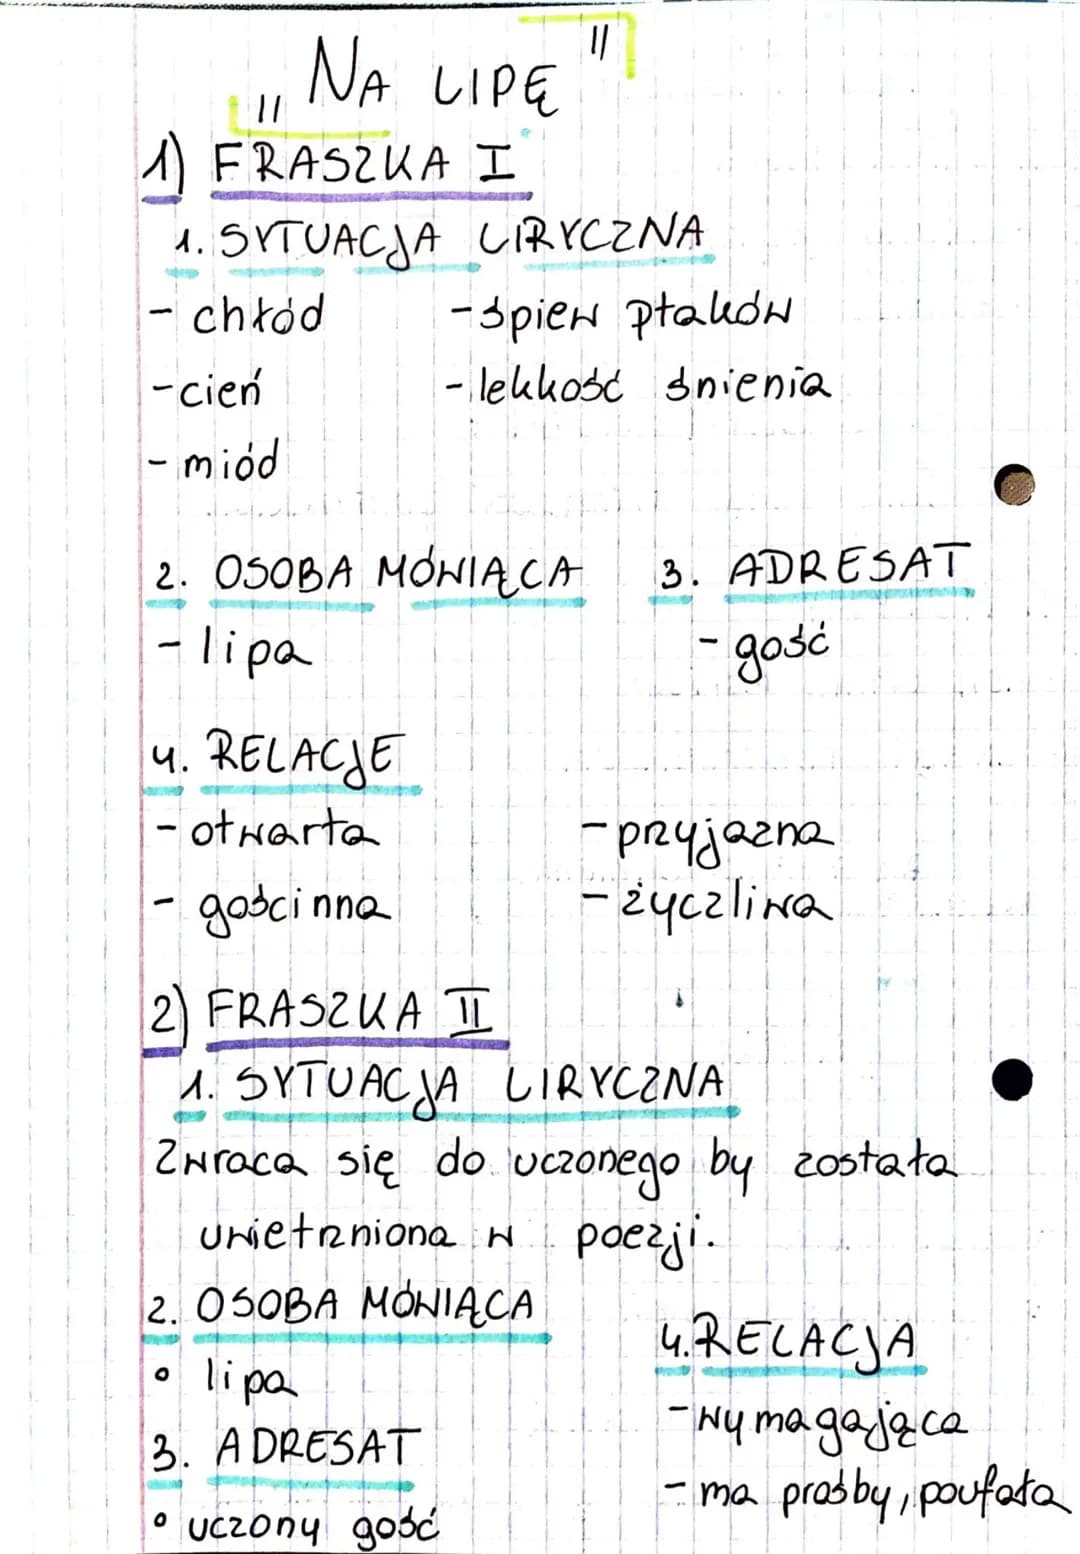 „NA LIPĘ"
1) FRASZKA I
1. SYTUACJA LIRYCZNA
- chłód -śpiew ptaków
-cień -lekkość śnienia
- miód
2. OSOBA MÓWIĄCA 3. ADRESAT
- lipa - gość
4. RELACJE
- otwarta -przyjazna
- gościnna - życzliwa
2) FRASZKA II
1. SYTUACJA LIRYCZNA
Zwraca się do uczonego by została
uwietrzniona w poezji.
2. OSOBA MÓWIĄCA
• lipa
3. ADRESAT
• uczony gość
4. RELACJA
-wymagająca
- ma prośby, poufała